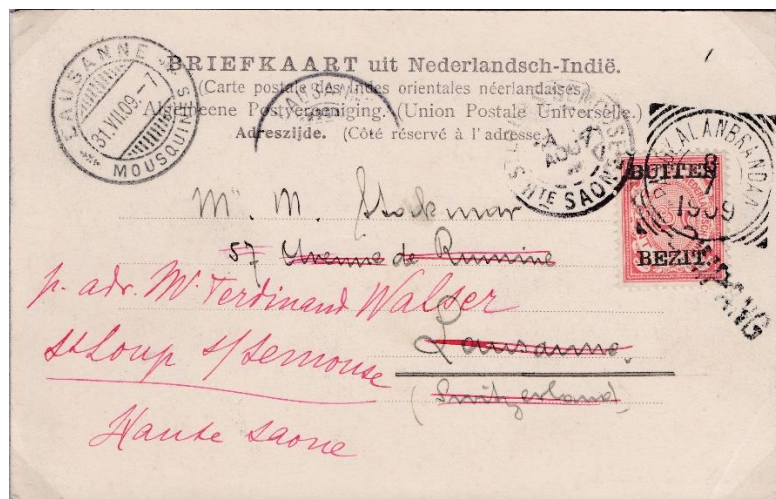 BRIEFKAART uit Nederlandsch-Indië.
(Carte postale des Indes orientales néerlandaises.)
Algemeene Postvereeniging. (Union Postale Universelle.)
Adreszijde. (Côté réservé à l'adresse.)
LAUSANNE
31.VII.09.-7
MOUSQUINES
LAUSANNE
Hte SAONE
PANGKALANBRANDAN
8
7
1909
BUITEN
BEZIT.
Mr. M. Stockmar
57 Avenue de Rumine
p. adr. Mr. Ferdinand Walser
Lausanne.
St Loup s/Semouse
(Switzerland)
Haute Saone